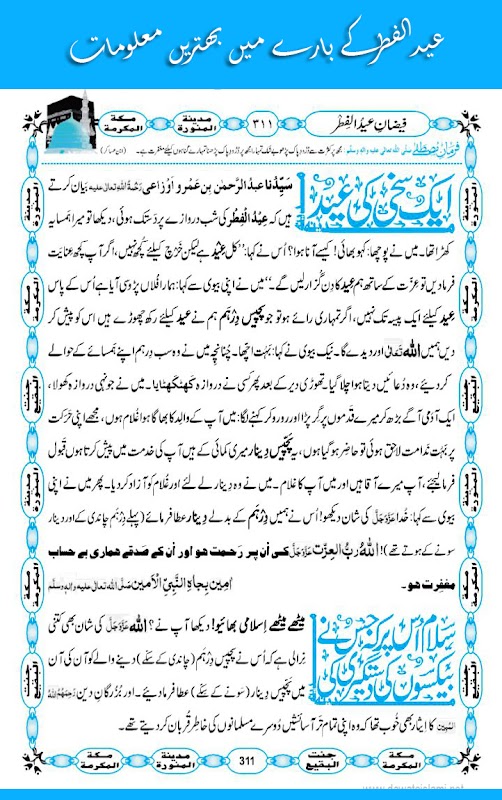 عید الفطر کے بارے میں بہترین معلومات
فیضانِ عیدُ الفِطْر
۳۱۱
مدینۃ المنورۃ
مکۃ المکرمۃ
فرمانِ مصطَفٰے صلی اللہ تعالیٰ علیہ والہٖ وسلم: مجھ پر کثرت سے دُرُودِ پاک پڑھو بے شک تمہارا مجھ پر دُرُودِ پاک پڑھنا تمہارے گناہوں کیلئے مغفرت ہے۔
ایک سخی کی عید
سیِّدُنا عبدالرَّحمٰن بن عَمْرو اَوزاعی رَحمۃُ اللہ تعالیٰ علیہ بیان کرتے
ہیں کہ عِیدُ الْفِطْر کی شب دروازے پر دستک ہوئی، دیکھا تو میرا ہمسایہ
کھڑا تھا۔ میں نے پوچھا: کہو بھائی! کیسے آنا ہوا؟ اُس نے کہا: ’’کل عِیْد ہے لیکن خَرْچ کیلئے کچھ نہیں، اگر آپ کچھ عنایَت
فرمادیں تو عزّت کے ساتھ ہم عِید کا دن گُزار لیں گے۔‘‘ میں نے اپنی بیوی سے کہا: ہمارا فُلاں پڑوسی آیا ہے اُس کے پاس
عید کیلئے ایک پیسہ تک نہیں، اگر تمہاری رائے ہو تو جو پچیس دِرْہم ہم نے عید کیلئے رکھ چھوڑے ہیں اس کو پیش کر
دیں ہمیں اللہ تعالیٰ اور دیدے گا۔ نیک بیوی نے کہا: بَہُت اچھا۔ چُنانچِہ میں نے وہ سب دِرہم اپنے ہمسائے کے حوالے
کر دیئے، وہ دُعائیں دیتا ہوا چلا گیا۔ تھوڑی دیر کے بعد پھر کسی نے دروازہ کھٹکھٹایا۔ میں نے جونہی دروازہ کھولا،
ایک آدَمی آگے بڑھ کر میرے قدموں پر گر پڑا اور رو رو کر کہنے لگا: میں آپ کے والد کا بھاگا ہوا غلام ہوں، مجھے اپنی حَرَکت
پر بَہُت نَدامت لاحِق ہوئی تو حاضِر ہو گیا ہوں، یہ پچیس دِینار میری کمائی کے ہیں آپ کی خدمت میں پیش کرتا ہوں قَبول
فرما لیجئے، آپ میرے آقا ہیں اور میں آپ کا غلام۔ میں نے وہ دِینار لے لئے اور غُلام کو آزاد کر دیا۔ پھر میں نے اپنی
بیوی سے کہا: خُدا عزوجل کی شان دیکھو! اُس نے ہمیں دِرْہم کے بدلے دِینار عطا فرمائے (پہلے دِرْہم چاندی کے اور دینار
سونے کے ہوتے تھے)! اللہُ ربُّ العزّت عزوجل کی اُن پر رَحمت ہو اور اُن کے صَدقے ہماری بے حساب
مغفِرت ہو۔ اٰمِین بِجاہِ النَّبِیِّ الْاَمین صلی اللہ تعالیٰ علیہ والہٖ وسلم
سلام اُس پر کہ جس نے
بیکسوں کی دستگیری کی
میٹھے میٹھے اِسلامی بھائیو! دیکھا آپ نے؟ اللہ عزوجل کی شان بھی کتنی
نرالی ہے کہ اُس نے پچیس دِرْہَم (چاندی کے سکّے) دینے والے کو آن کی آن
میں پچیس دِینار (سونے کے سکّے) عطا فرما دیئے۔ اور بُزُرگانِ دین رحمہم اللہ
المبین کا ایثار بھی خُوب تھا کہ وہ اپنی تمام تَر آسائشیں دُوسرے مسلمانوں کی خاطِر قُربان کر دیتے تھے۔
مکۃ المکرمۃ
مدینۃ المنورۃ
311
جنت البقیع
مکۃ المکرمۃ
www.dawateislami.net